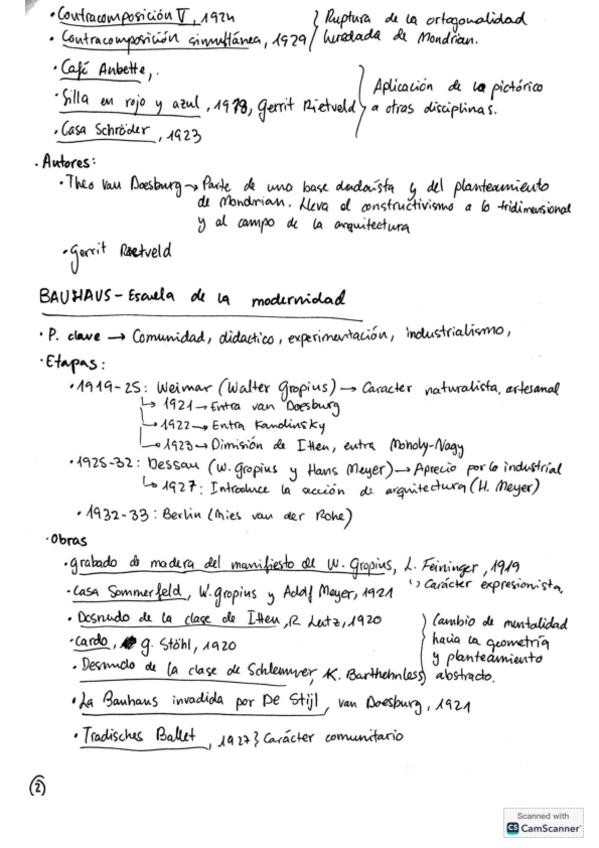 • Contracomposición V, 1924 } Ruptura de la ortogonalidad
• Contracomposición simultánea, 1929 heredada de Mondrian.
• Café Aubette,.
• Silla en rojo y azul, 1918, Gerrit Rietveld } Aplicación de lo pictórico a otras disciplinas.
• Casa Schröder, 1923
• Autores:
• Theo van Doesburg → Parte de una base dadaísta y del planteamiento
de Mondrian. Lleva el constructivismo a lo tridimensional
y al campo de la arquitectura
• Gerrit Rietveld
BAUHAUS - Escuela de la modernidad
• P. clave → Comunidad, didactico, experimentación, industrialismo,
• Etapas:
• 1919-25: Weimar (Walter Gropius) → Caracter naturalista, artesanal
↳ 1921 → Entra van Doesburg
↳ 1922 → Entra Kandinsky
↳ 1923 → Dimisión de Itten, entra Moholy-Nagy
• 1925-32: Dessau (W. Gropius y Hans Meyer) → Aprecio por lo industrial
↳ 1927: Introduce la sección de arquitectura (H. Meyer)
• 1932-33: Berlin (Mies van der Rohe)
• Obras
• grabado de madera del manifiesto de W. Gropius, L. Feininger, 1919
↳ Carácter expresionista,
• Casa Sommerfeld, W. gropius y Adolf Meyer, 1921
• Desnudo de la clase de Itten, R. Lutz, 1920 } Cambio de mentalidad
• Cardo, g. Stöhl, 1920 hacia la geometría
y planteamiento
• Desnudo de la clase de Schlemmer, K. Barthelmess abstracto.
• La Bauhaus invadida por De Stijl, van Doesburg, 1921
• Tradisches Ballet, 1927 } Carácter comunitario
2
Scanned with
CS CamScanner